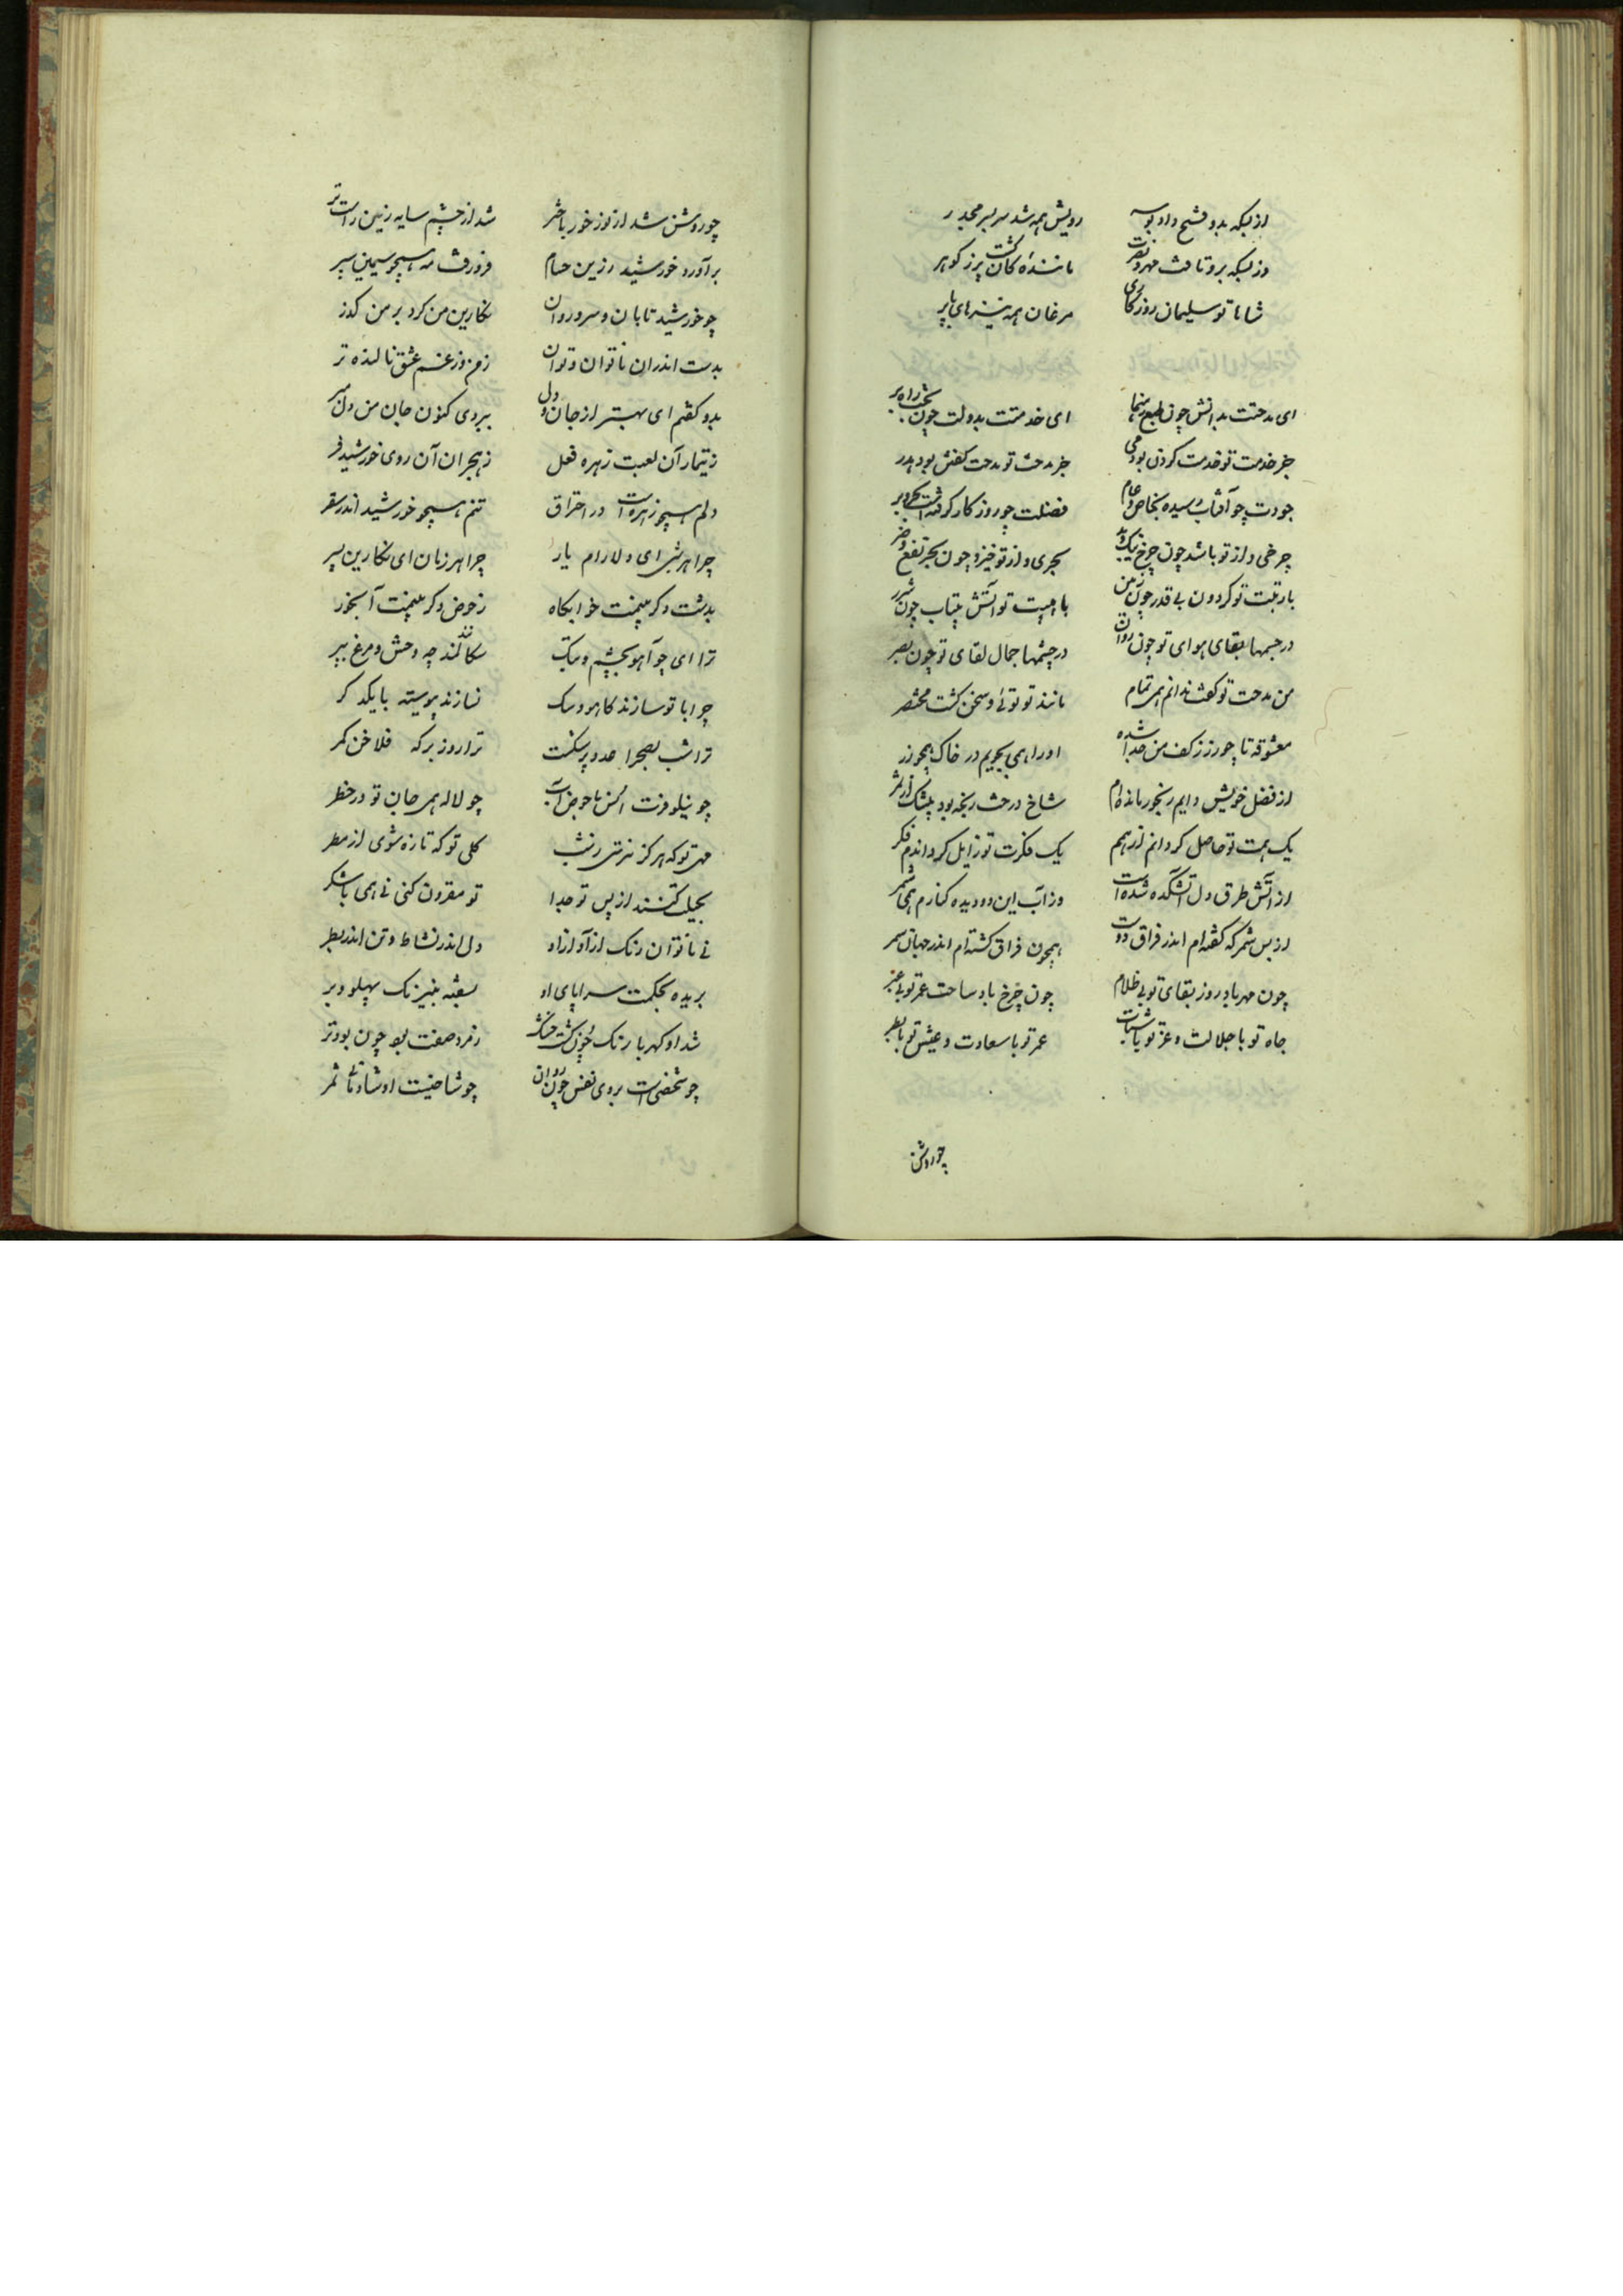 از بسکه بدو فتح داد بوسه رویش همه شد سر بسر مجدر
وز بسکه برو تافت مهر و نصرت ماننده کان گشت پرز کوهر
شاها تو سلیمان روزکاری مرغان همه تیرهای باپر
ای مدحتت بدانش چون طبع رهنما ای خدمتت بدولت چون بخت راه بر
جز خدمت تو خدمت کردن بود همی جز مدحت تو مدحت کفتن بود هدر
جودت چو آفتاب رسیده بخاص و عام فضلت چو روزکار کرفته است بحر و بر
چرخی و از تو باشد چون چرخ نیک و بد بحری و از تو خیزد چون بحر نفع و ضر
با رتبت تو کردون بی قدر چون زمین با هیبت تو آتش بیتاب چون شرر
در جسمها بقای هوای تو چون روان در چشمها جمال لقای تو چون بصر
من مدحت تو کفت ندانم همی تمام مانند تو توئی و سخن کشت مختصر
معشوقه تا چو زر ز کف من جدا شده اورا همی بجویم در خاک همچو زر
از فضل خویش دایم رنجور مانده‌ام شاخ درخت رنجه بود بیشک از ثمر
یک همت تو حاصل کرداندم از هم یک فکرت تو زایل کرداندم فکر
از آتش طرق دل آتشکده شده است وز آب این دو دیده کنارم همی شمر
از بس سمر که کفته‌ام اندر فراق دوست همچون فراق کشته‌ام اندر جهان سمر
چون مهر باد روز بقای تو بی ظلام چون چرخ باد ساحت عمر تو بی عبر
جاه تو با جلالت و عز تو با ثبات عمر تو با سعادت و عیش تو با بطر
چو روشن
چو روشن شد از نور خور باختر شد از چشم سایه زمین راست تر
برآورد خورشید زرین حسام فرو رفت مه همچو سیمین سپر
چو خورشید تابان و سرو روان نکارین من کرد بر من کذر
بدست اندران ناتوان و توان ز من وز غم عشق نالنده تر
بدو کفتم ای بهتر از جان و دل ببردی کنون جان من دل مبر
ز تیمار آن لعبت زهره فعل ز هجران آن روی خورشید فر
دلم همچو زهره است در احتراق تنم همچو خورشید اندر سقر
چرا هر شبی ای دلارام یار چرا هر زمان ای نکارین پسر
بدشت دکر بینمت خوابکاه ز حوض دکر بینمت آبخور
ترا ای چو آهو بچشم و بتک سکانند چه وحش و مرغ ببر
چرا با تو سازند کاهو و سک نسازند پیوسته با یکدکر
ترا شب بصحرا عدو بر سکست ترا روز بر که فلاخن کمر
چو نیلوفرت انس با حوض آب چو لاله همی جان تو در خطر
مهی تو که هرکز نترسی ز شب کلی تو که تازه شوی از مطر
بحیلت کنند از پس تو جدا تو مقرون کنی نی همی با شکر
نی ناتوان رنک ازاد ازاد دل اندر نشاط و تن اندر بطر
بریده بحکمت سراپای او بسفته بنیرنک پهلو و بر
شد او کهربا رنک چون کشت خشک زمرد صفت بود چون بود تر
چو شخصی است بروی نفس چون روان چو شاخیست او شادئی ثمر